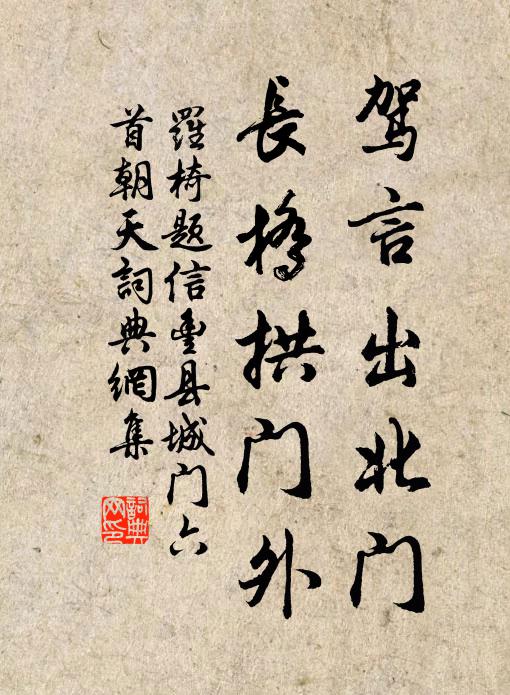 驾言出北门
長橋拱門外
羅椅题信豐县城门六
首朝天詞典網集
詞典
网印